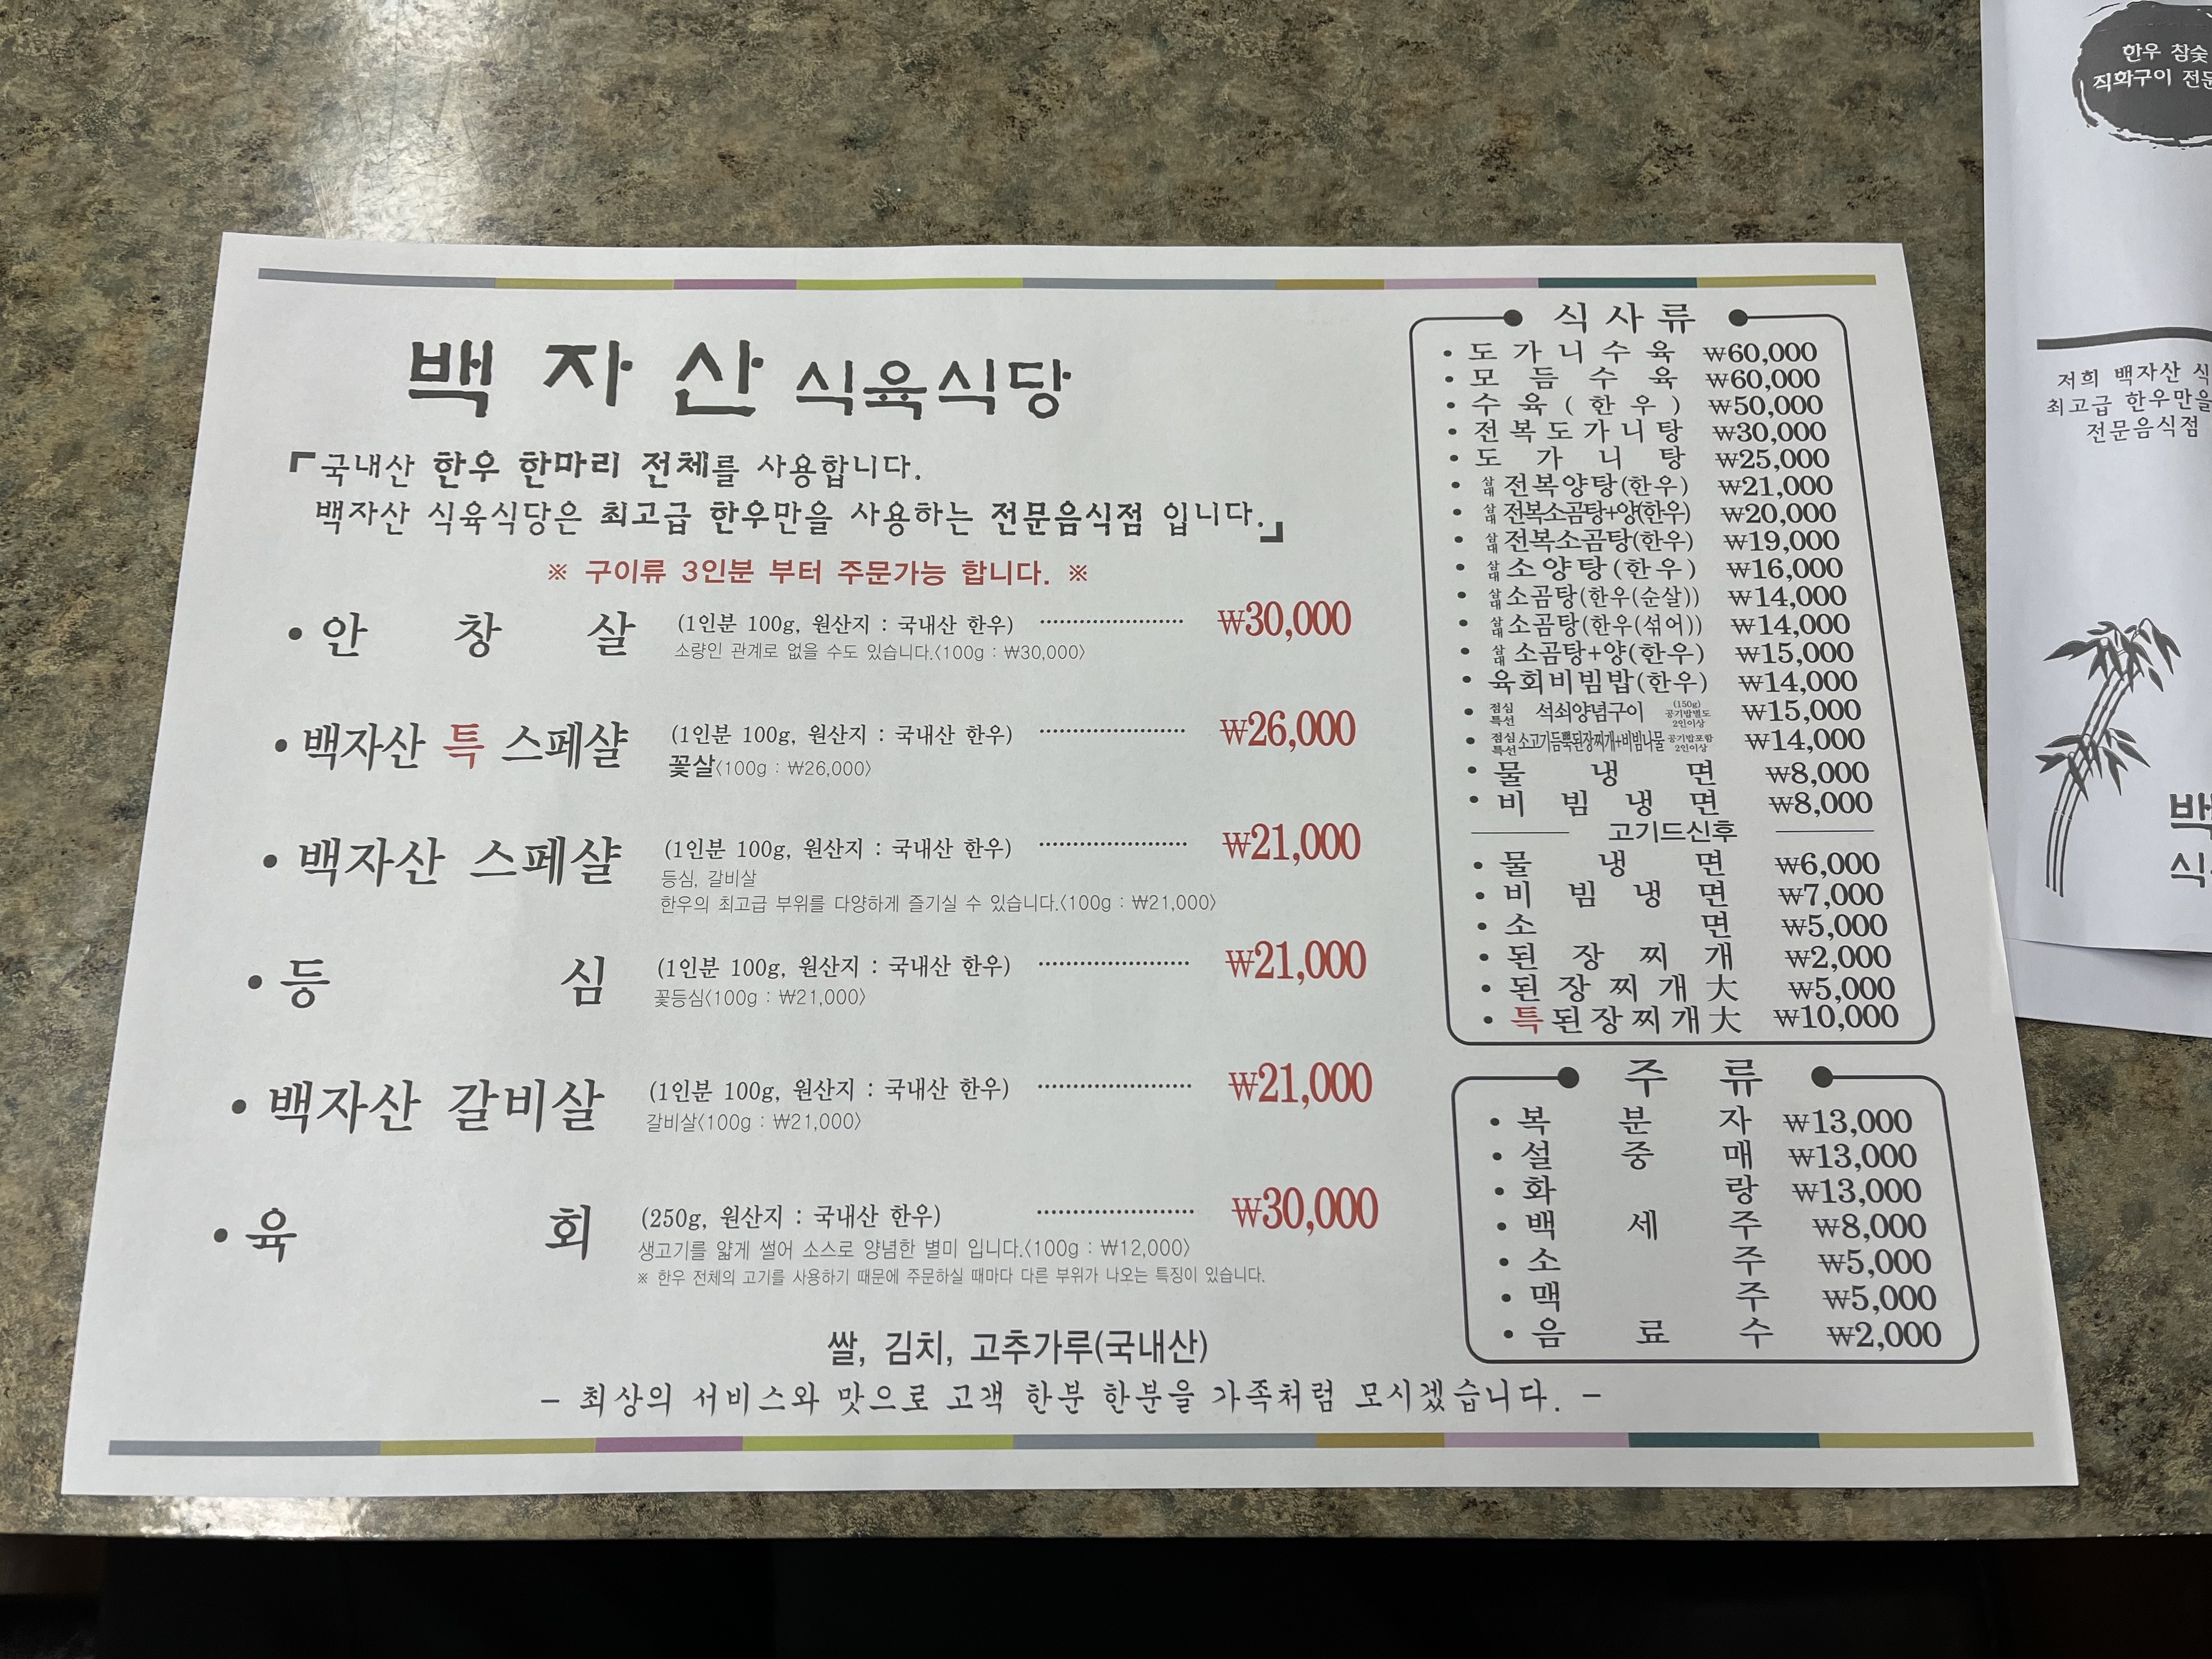 백자산 식육식당
「국내산 한우 한마리 전체를 사용합니다.
백자산 식육식당은 최고급 한우만을 사용하는 전문음식점 입니다.」
※ 구이류 3인분 부터 주문가능 합니다. ※
• 안창살 (1인분 100g, 원산지 : 국내산 한우) ₩30,000
소량인 관계로 없을 수도 있습니다.〈100g : ₩30,000〉
• 백자산 특 스페샬 (1인분 100g, 원산지 : 국내산 한우) ₩26,000
꽃살〈100g : ₩26,000〉
• 백자산 스페샬 (1인분 100g, 원산지 : 국내산 한우) ₩21,000
등심, 갈비살
한우의 최고급 부위를 다양하게 즐기실 수 있습니다.〈100g : ₩21,000〉
• 등심 (1인분 100g, 원산지 : 국내산 한우) ₩21,000
꽃등심〈100g : ₩21,000〉
• 백자산 갈비살 (1인분 100g, 원산지 : 국내산 한우) ₩21,000
갈비살〈100g : ₩21,000〉
• 육회 (250g, 원산지 : 국내산 한우) ₩30,000
생고기를 얇게 썰어 소스로 양념한 별미 입니다.〈100g : ₩12,000〉
※ 한우 전체의 고기를 사용하기 때문에 주문하실 때마다 다른 부위가 나오는 특징이 있습니다.
쌀, 김치, 고추가루(국내산)
- 최상의 서비스와 맛으로 고객 한분 한분을 가족처럼 모시겠습니다. -
식사류
• 도가니수육 ₩60,000
• 모듬수육 ₩60,000
• 수육(한우) ₩50,000
• 전복도가니탕 ₩30,000
• 도가니탕 ₩25,000
• 삼대 전복양탕(한우) ₩21,000
• 삼대 전복소곰탕+양(한우) ₩20,000
• 삼대 전복소곰탕(한우) ₩19,000
• 삼대 소양탕(한우) ₩16,000
• 삼대 소곰탕(한우(순살)) ₩14,000
• 삼대 소곰탕(한우(섞어)) ₩14,000
• 삼대 소곰탕+양(한우) ₩15,000
• 육회비빔밥(한우) ₩14,000
• 점심특선 석쇠양념구이 (150g) 공기밥별도 2인이상 ₩15,000
• 점심특선 소고기듬뿍된장찌개+비빔나물 공기밥포함 2인이상 ₩14,000
• 물냉면 ₩8,000
• 비빔냉면 ₩8,000
고기드신후
• 물냉면 ₩6,000
• 비빔냉면 ₩7,000
• 소면 ₩5,000
• 된장찌개 ₩2,000
• 된장찌개大 ₩5,000
• 특된장찌개大 ₩10,000
주류
• 복분자 ₩13,000
• 설중매 ₩13,000
• 화랑 ₩13,000
• 백세주 ₩8,000
• 소주 ₩5,000
• 맥주 ₩5,000
• 음료수 ₩2,000
한우 참숯
직화구이 전문
저희 백자산 식
최고급 한우만을
전문음식점
백
식